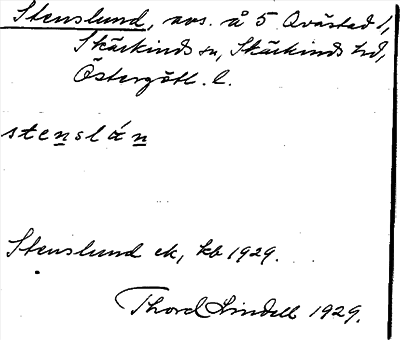 Stenslund, avs. å 5 Qvästad 1,
Skärkinds sn, Skärkinds hd,
Östergötl. l.
stenslán
Stenslund ek, kb 1929.
Thord Lindell 1929.